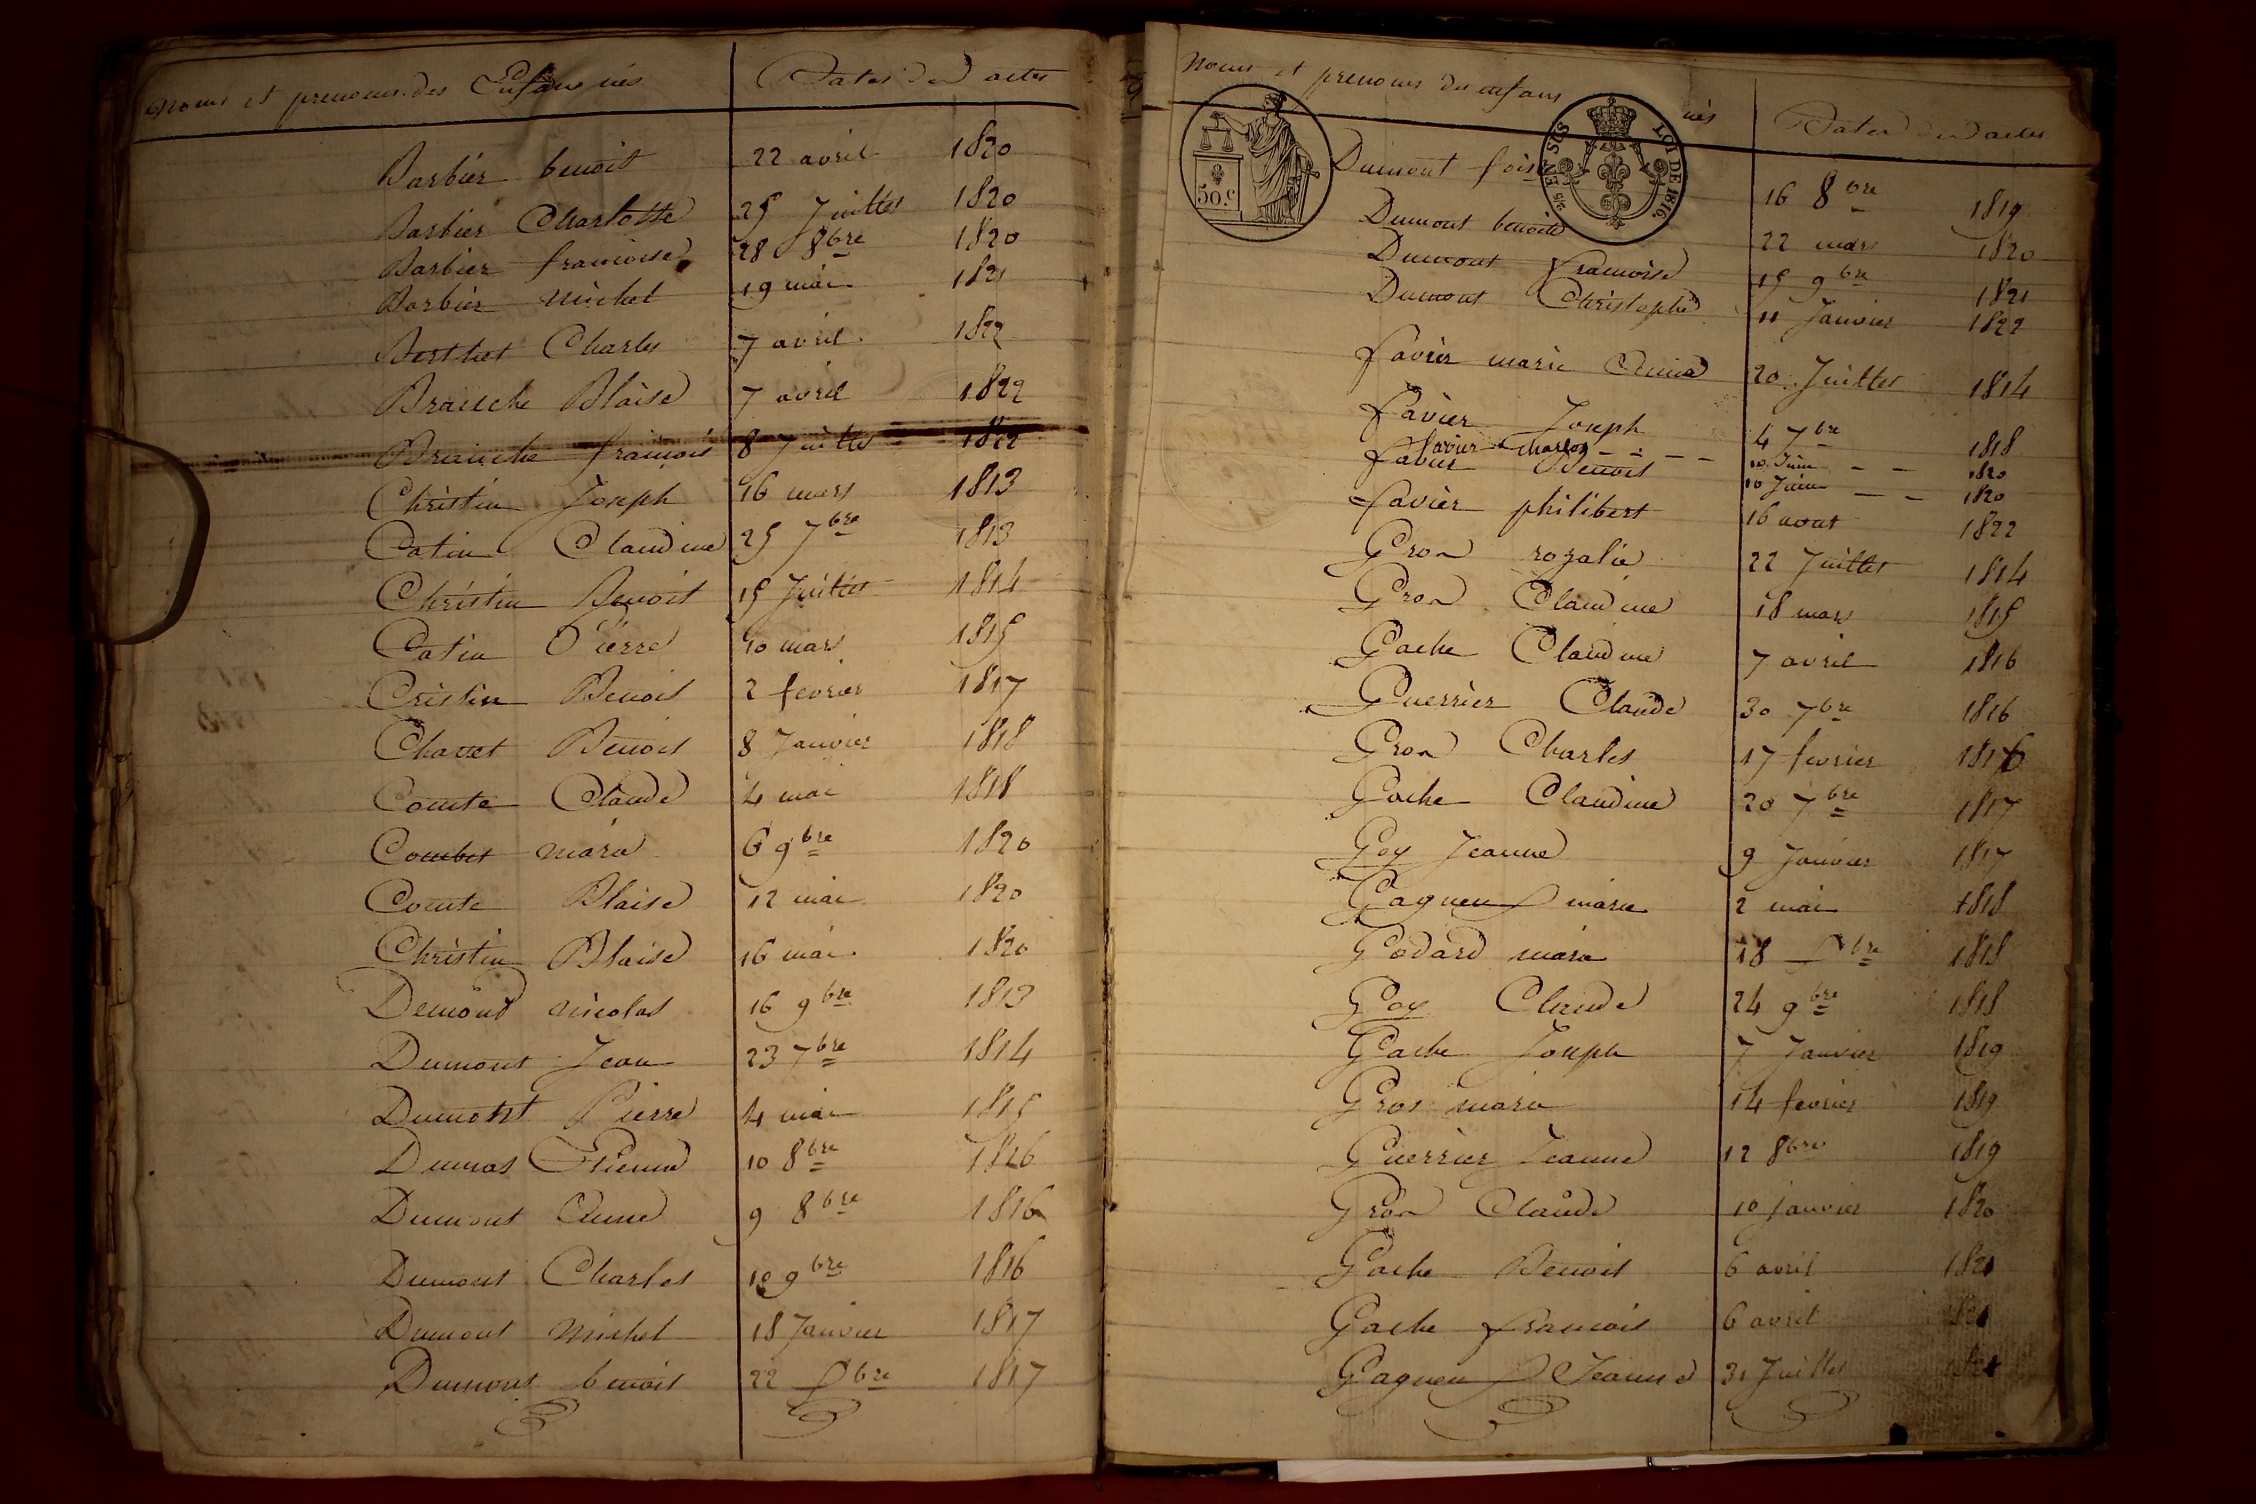 noms et prenoms des Enfans nés Dates des actes
Barbier benoit 22 avril 1820
Barbier Charlotte 25 Juillet 1820
Barbier francoise 28 8bre 1820
Barbier michel 19 mai 1821
Berthet Charles 7 avril 1822
Branche Blaise 7 avril 1822
Branche francois 8 Juillet 1822
Christin Joseph 16 mars 1813
Catin Claudine 25 7bre 1813
Christin Benoit 15 Juillet 1814
Catin Pierre 10 mars 1815
Cristin Benoit 2 fevrier 1817
Chavet Benoit 8 Janvier 1818
Comte Claude 4 mai 1818
Combet marie 6 9bre 1820
Comte Blaise 12 mai 1820
Christin Blaise 16 mai 1820
Demond nicolas 16 9bre 1813
Dumont Jean 23 7bre 1814
Dumont Pierre 4 mai 1815
Dumas Etienne 10 8bre 1816
Dumont Anne 9 8bre 1816
Dumont Charles 10 9bre 1816
Dumont michel 18 Janvier 1817
Dumont benoit 22 Xbre 1817
Noms et prenoms des enfans nés Dates des actes
50 c.
2/5 EN SUS LOI DE 1816.
Dumont foise 16 8bre 1819
Dumont benoite 22 mars 1820
Dumont francoise 15 9bre 1821
Dumont Christophe 11 Janvier 1822
favier marie Anne 20 Juillet 1814
favier Joseph 4 7bre 1818
favier Charles 10 Juin 1820
favier Benoit 10 Juin 1820
favier philibert 16 aout 1822
Gron rozalie 22 Juillet 1814
Gron Claudine 18 mars 1815
Gache Claudine 7 avril 1816
Guerrier Claude 30 7bre 1816
Gron Charles 17 fevrier 1816
Gache Claudine 20 7bre 1817
Goy Jeanne 9 Janvier 1817
Gagneux marie 2 mai 1818
Godard marie 18 Xbre 1818
Goy Claude 24 9bre 1818
Gache Joseph 7 Janvier 1819
Gros marie 14 fevrier 1819
Guerrier Jeanne 12 8bre 1819
Gron Claude 10 janvier 1820
Gache Benoit 6 avril 1821
Gache francois 6 avril 1821
Gagneux Jeanne 31 Juillet 1821